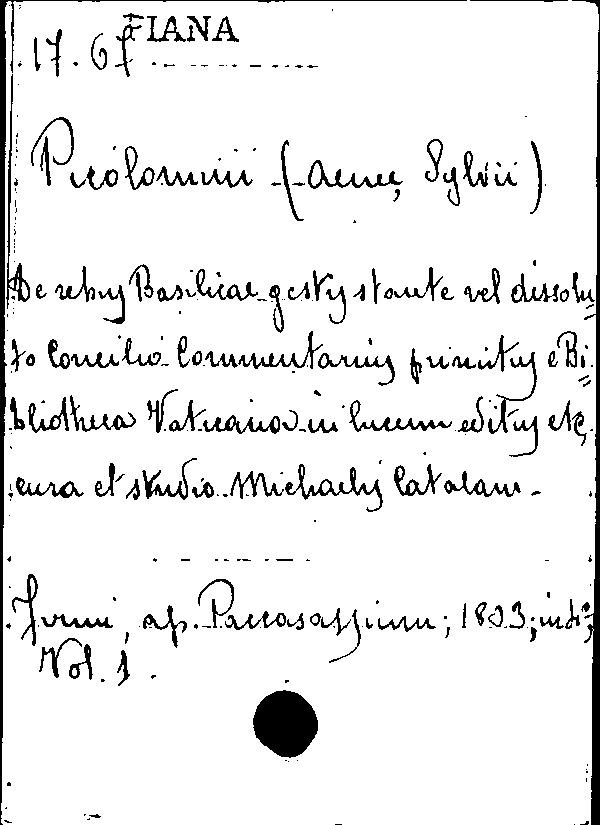 FIANA
17. 67
Picolominii (Aeneę Sylvii)
De rebus Basilicae gestis stante vel dissolu=
to Concilio Commentarius primitus e Bi=
bliotheca Vaticana in lucem editus etc,
cura et studio Michaelis Catalani -
Firmi, ap. Paccasassium; 1803; in
Vol. 1.